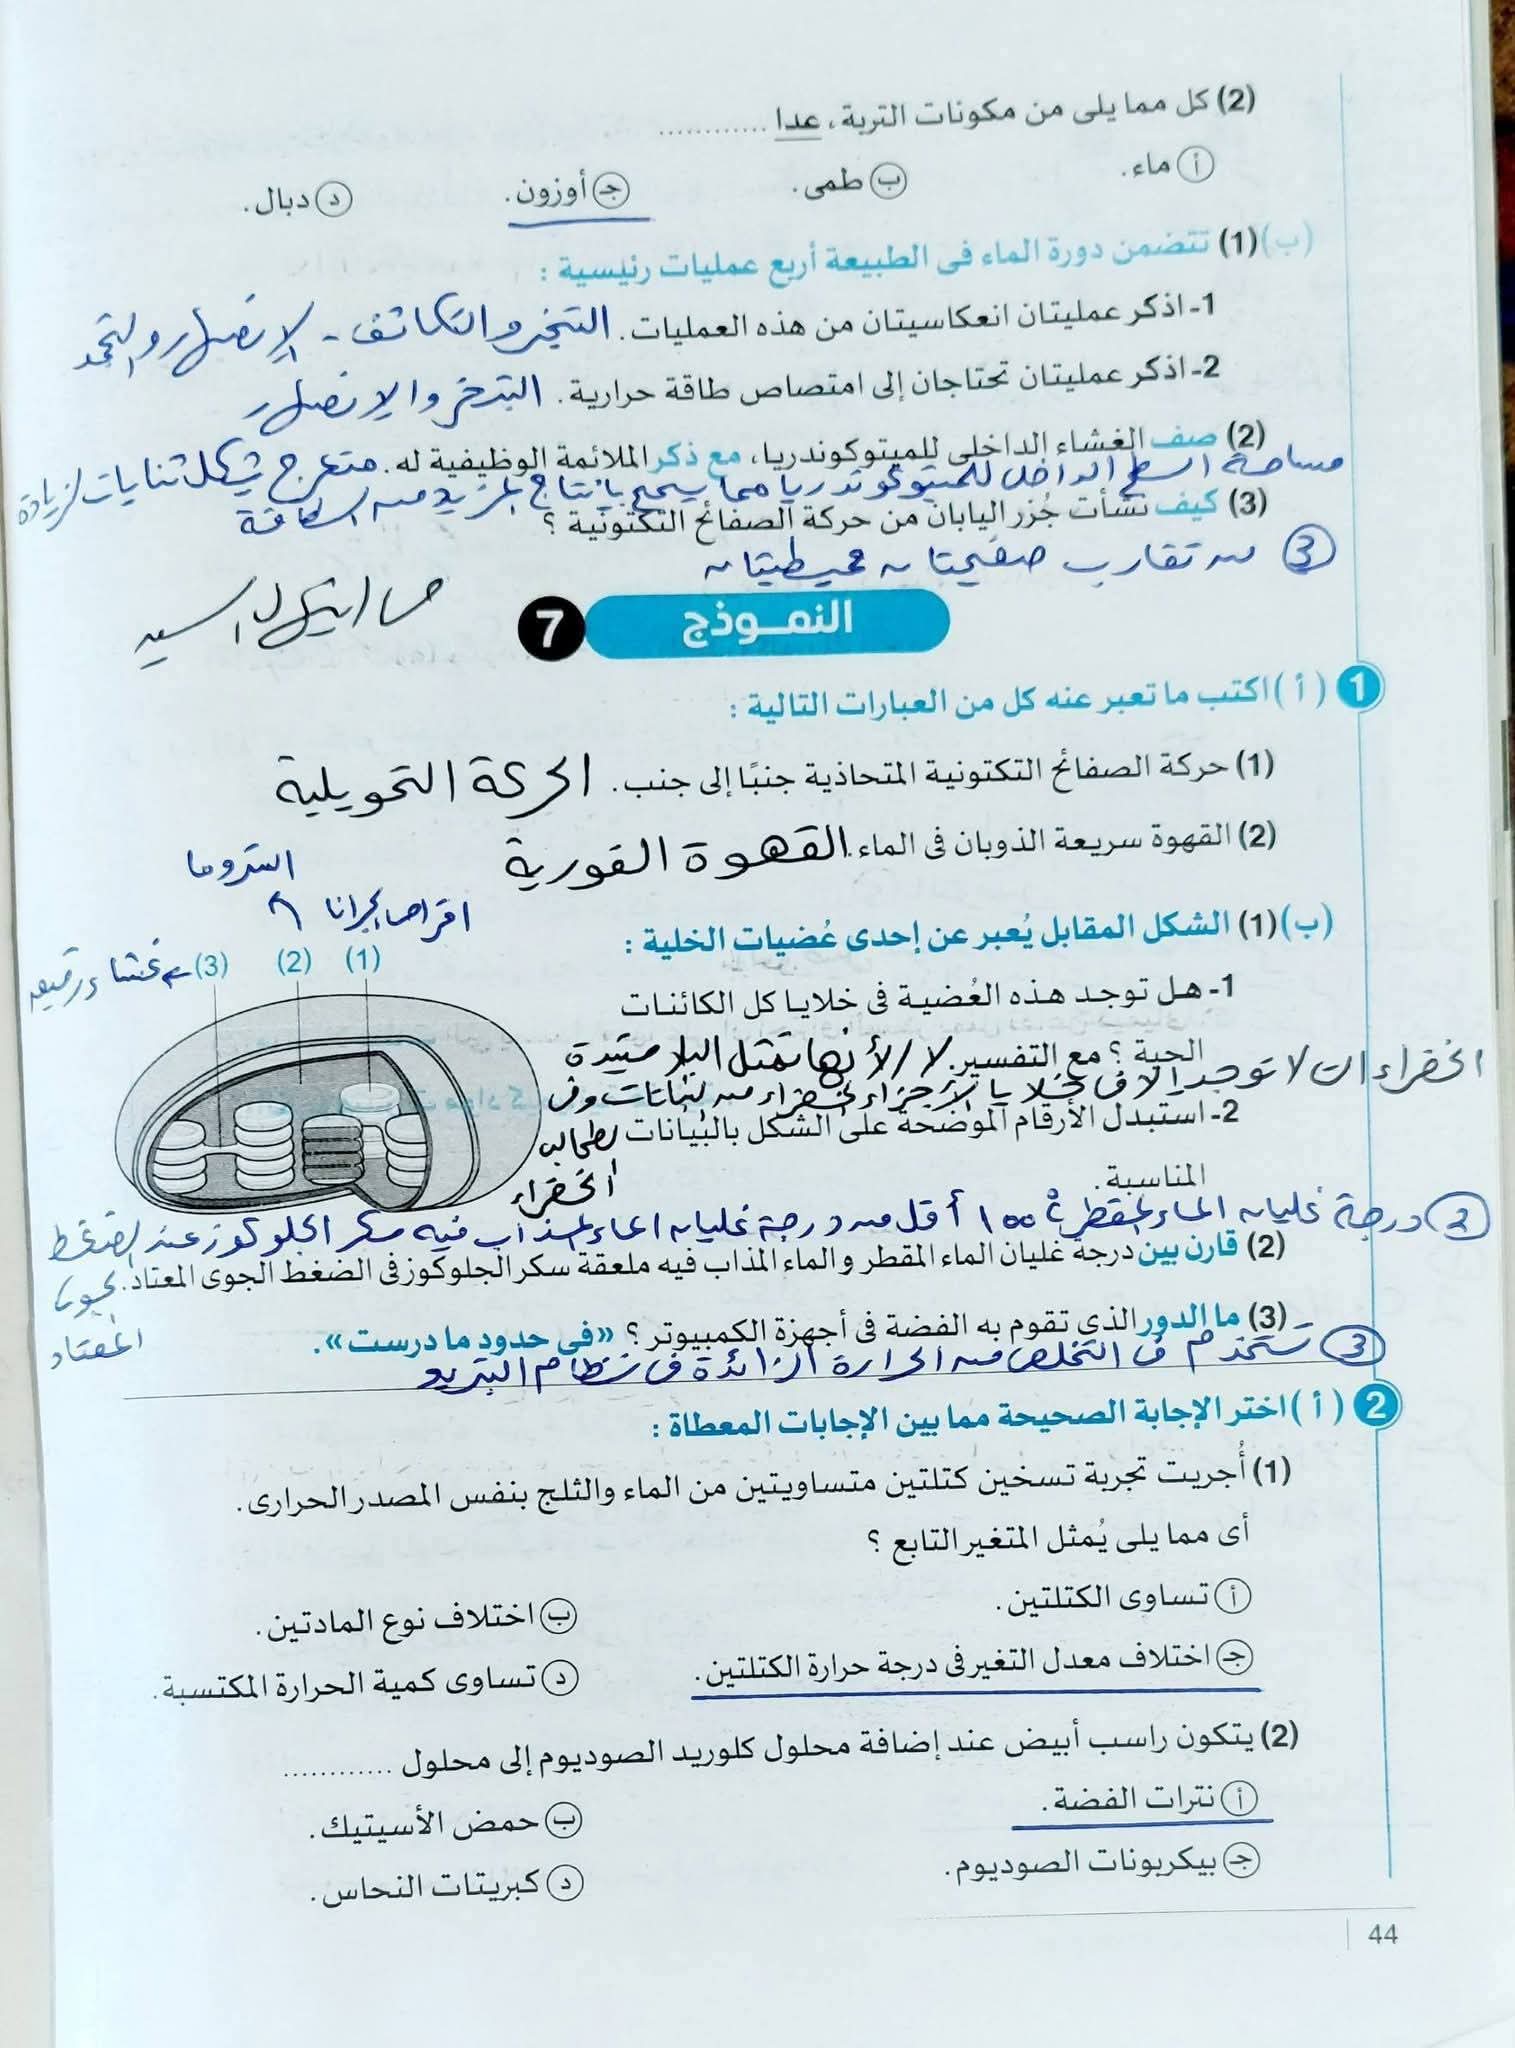 (2) كل مما يلى من مكونات التربة، عدا ............
أ ماء. ب طمى. ج أوزون. د دبال.
(ب) (1) تتضمن دورة الماء فى الطبيعة أربع عمليات رئيسية :
1- اذكر عمليتان انعكاسيتان من هذه العمليات. التبخر والتكاثف - الإنصهار والتجمد
2- اذكر عمليتان تحتاجان إلى امتصاص طاقة حرارية. التبخر والإنصهار
(2) صف الغشاء الداخلى للميتوكوندريا، مع ذكر الملائمة الوظيفية له. متعرج بشكل ثنايات لزيادة
مساحة السطح الداخل للميتوكوندريا مما يسمح بإنتاج المزيد من الطاقة
(3) كيف نشأت جُزر اليابان من حركة الصفائح التكتونية ؟
3 من تقارب صفيحتان محيطيتان
النمـوذج 7
السيد
1 (أ) اكتب ما تعبر عنه كل من العبارات التالية :
(1) حركة الصفائح التكتونية المتحاذية جنبًا إلى جنب. الحركة التحويلية
(2) القهوة سريعة الذوبان فى الماء. القهوة الفورية
الستروما
اقراص الجرانا
(ب) (1) الشكل المقابل يُعبر عن إحدى عُضيات الخلية :
(1) (2) (3) غشاء رقيق
1- هل توجد هذه العُضية فى خلايا كل الكائنات
الحية ؟ مع التفسير. لا لأنها تمثل البلاستيدة
الخضراء لا توجد إلا فى خلايا الأجزاء الخضراء من النباتات وفى
2- استبدل الأرقام الموضحة على الشكل بالبيانات
الطحالب
المناسبة.
الخضراء
2 درجة غليان الماء المقطر 100°م أقل من درجة غليان الماء المذاب فيه سكر الجلوكوز عند الضغط
(2) قارن بين درجة غليان الماء المقطر والماء المذاب فيه ملعقة سكر الجلوكوز فى الضغط الجوى المعتاد.
الجوى
المعتاد
(3) ما الدور الذى تقوم به الفضة فى أجهزة الكمبيوتر ؟ «فى حدود ما درست».
3 تستخدم فى التخلص من الحرارة الزائدة فى نظام التبريد
2 (أ) اختر الإجابة الصحيحة مما بين الإجابات المعطاة :
(1) أُجريت تجربة تسخين كتلتين متساويتين من الماء والثلج بنفس المصدر الحرارى.
أى مما يلى يُمثل المتغير التابع ؟
أ تساوى الكتلتين. ب اختلاف نوع المادتين.
ج اختلاف معدل التغير فى درجة حرارة الكتلتين. د تساوى كمية الحرارة المكتسبة.
(2) يتكون راسب أبيض عند إضافة محلول كلوريد الصوديوم إلى محلول ............
أ نترات الفضة. ب حمض الأسيتيك.
ج بيكربونات الصوديوم. د كبريتات النحاس.
44